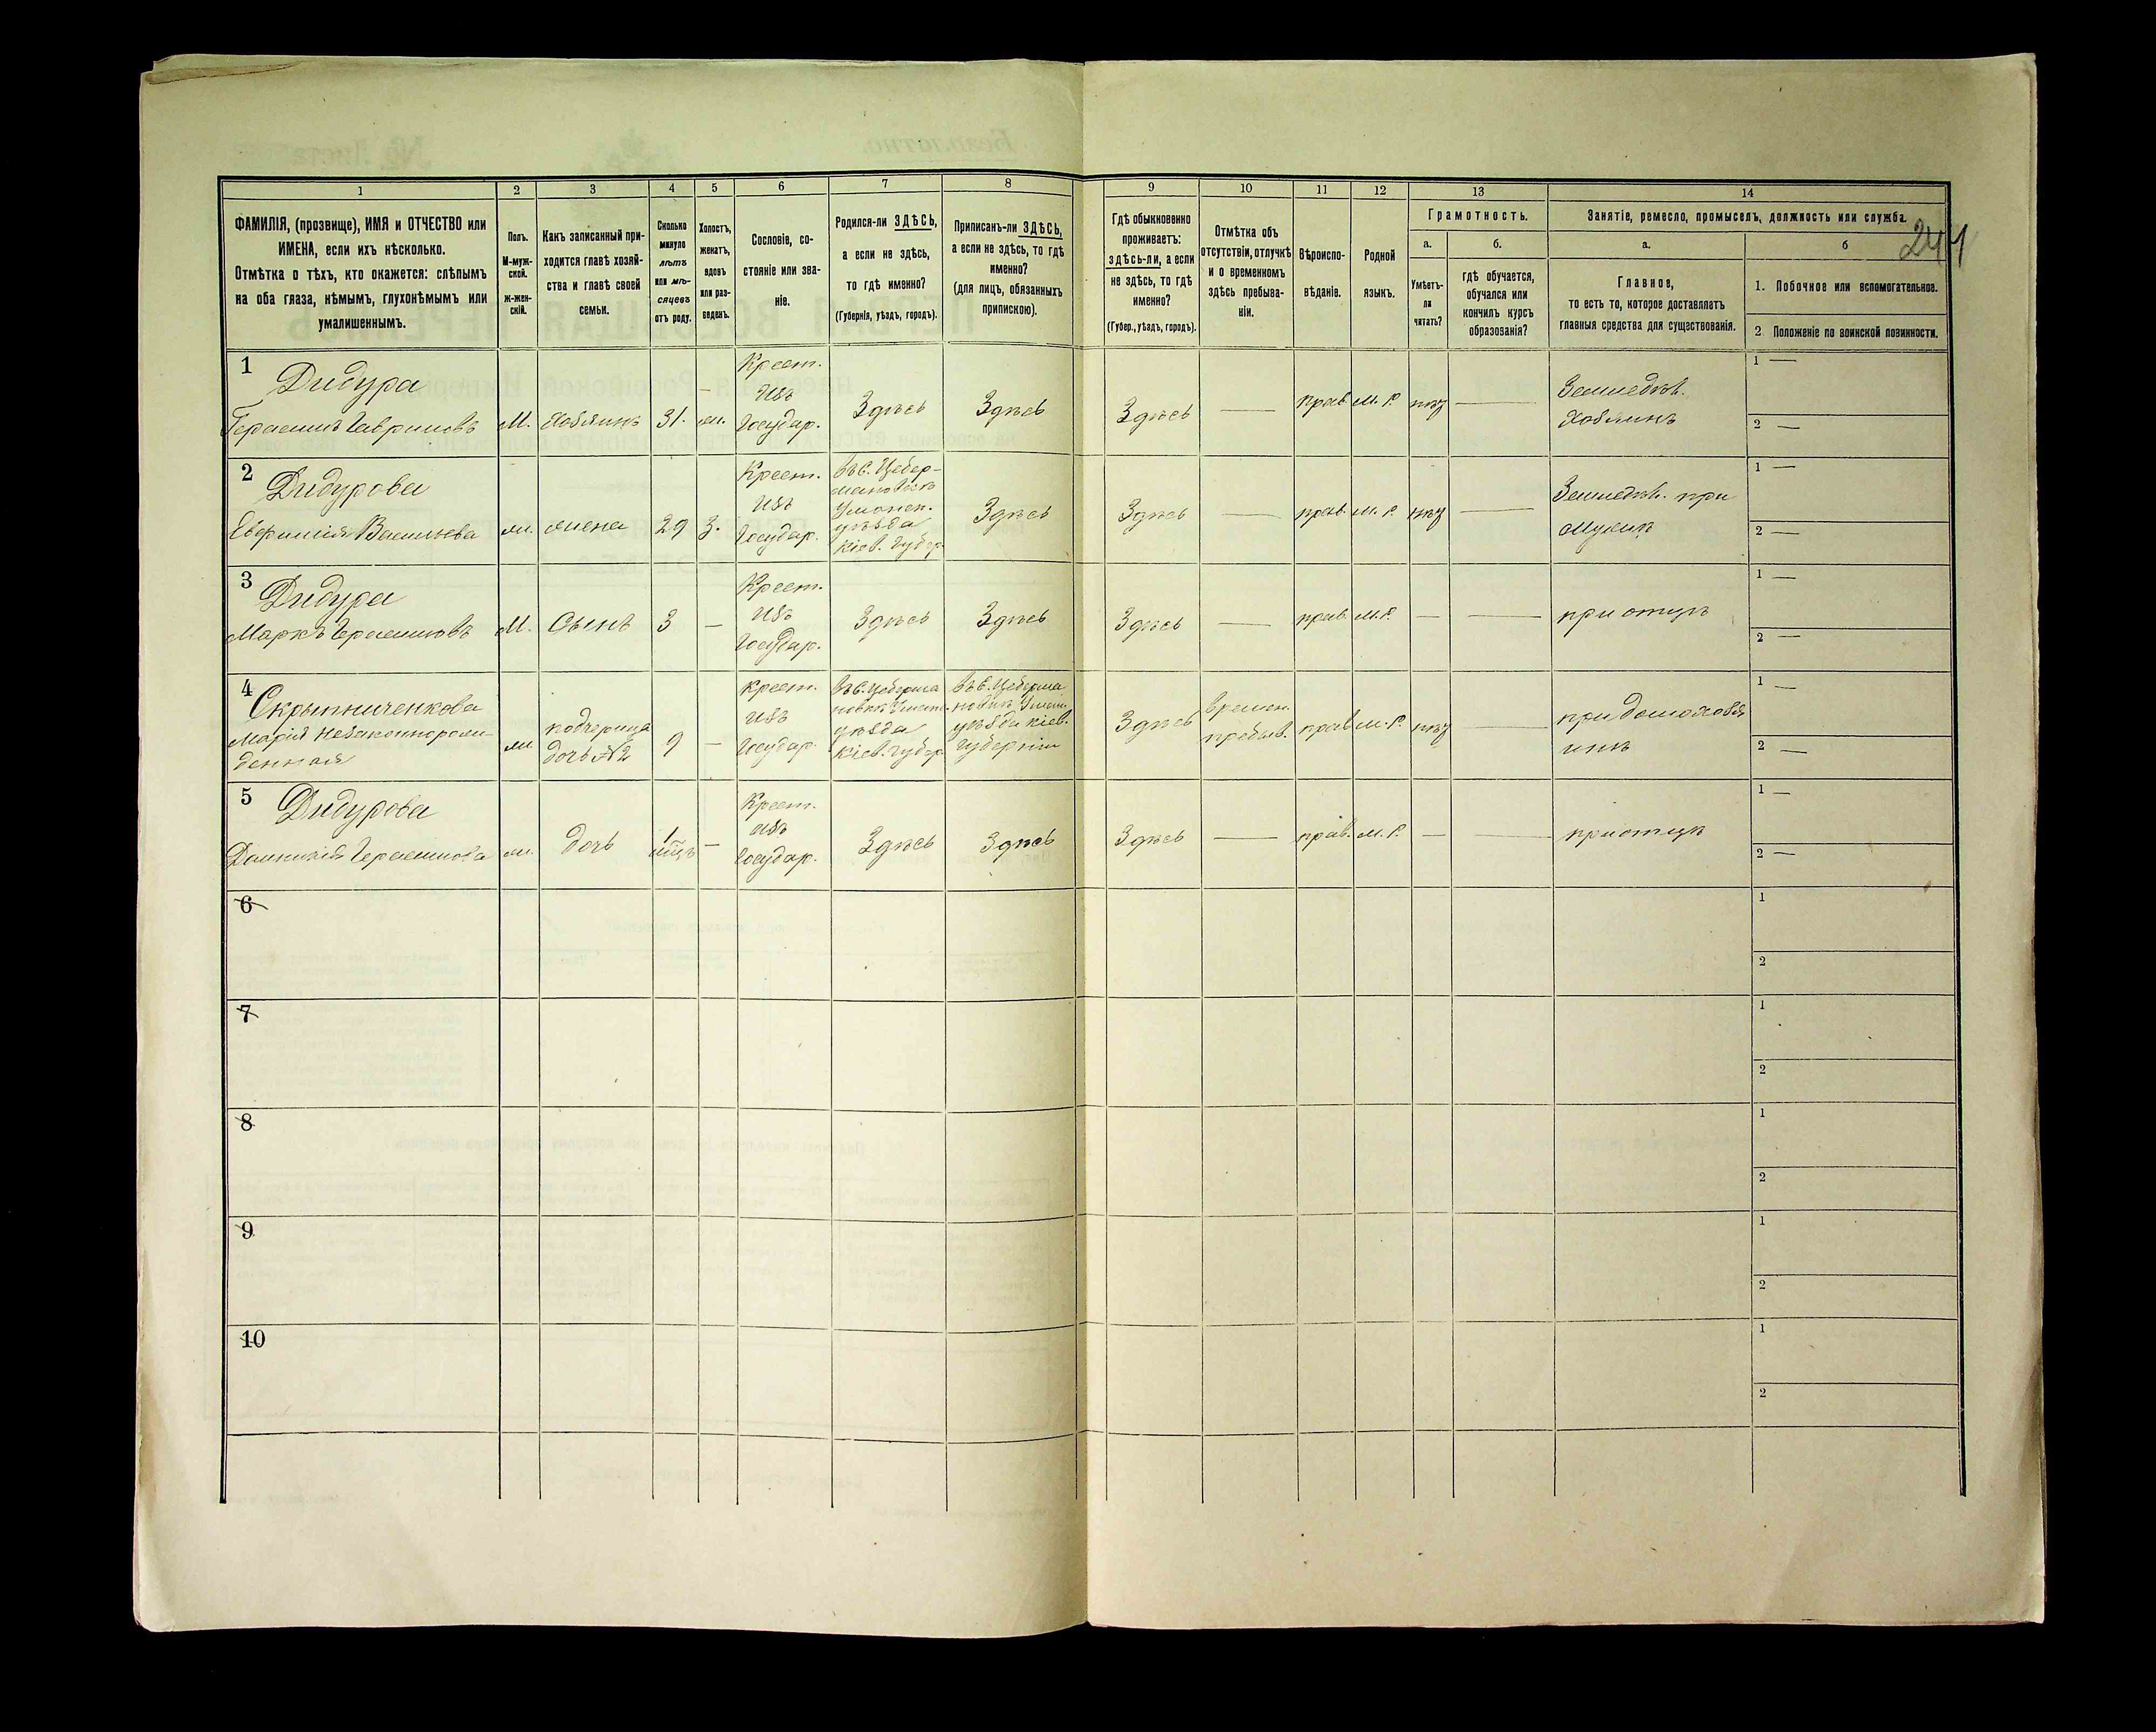 244
1
2
3
4
5
6
7
8
9
10
11
12
13
14
ФАМИЛІЯ, (прозвище), ИМЯ и ОТЧЕСТВО или
ИМЕНА, если ихъ нѣсколько.
Отмѣтка о тѣхъ, кто окажется: слѣпымъ
на оба глаза, нѣмымъ, глухонѣмымъ или
умалишеннымъ.
Полъ.
М-муж-
ской.
ж-жен-
скій.
Какъ записанный при-
ходится главѣ хозяй-
ства и главѣ своей
семьи.
Сколько
минуло
лѣтъ
или мѣ-
сяцевъ
отъ роду.
Холостъ,
женатъ,
вдовъ
или раз-
веденъ.
Сословіе, со-
стояніе или зва-
ніе.
Родился-ли ЗДѢСЬ,
а если не здѣсь,
то гдѣ именно?
(Губернія, уѣздъ, городъ).
Приписанъ-ли ЗДѢСЬ,
а если не здѣсь, то гдѣ
именно?
(для лицъ, обязанныхъ
припискою).
Гдѣ обыкновенно
проживаетъ:
здѣсь-ли, а если
не здѣсь, то гдѣ
именно?
(Губер., уѣздъ, городъ).
Отмѣтка объ
отсутствіи, отлучкѣ
и о временномъ
здѣсь пребыва-
ніи.
Вѣроиспо-
вѣданіе.
Родной
языкъ.
Грамотность.
а.
Умѣетъ-
ли
читать?
б.
гдѣ обучается,
обучался или
кончилъ курсъ
образованія?
Занятіе, ремесло, промыселъ, должность или служба.
а.
Главное,
то есть то, которое доставляетъ
главныя средства для существованія.
б
1. Побочное или вспомогательное.
2. Положеніе по воинской повинности.
1
Дидура
Герасимъ Гавриловъ
М.
Хозяинъ
31.
ж.
Крест.
изъ
Государ.
Здѣсь
Здѣсь
Здѣсь
—
прав.
М. Р.
нѣт
—
Земледѣл.
Хозяинъ
1 —
2 —
2
Дидурова
Евфимія Васильева
ж.
жена
29
З.
Крест.
изъ
Государ.
въ с. Цебер-
мановкѣ
Уманск.
уѣзда
Кіев. Губер.
Здѣсь
Здѣсь
—
прав.
М. Р.
нѣт
—
Земледѣл. при
мужѣ
1 —
2 —
3
Дидура
Маркъ Герасимовъ
М.
Сынъ
3
—
Крест.
изъ
Государ.
Здѣсь
Здѣсь
Здѣсь
—
прав.
М. Р.
—
—
при отцѣ
1 —
2 —
4
Скрыпниченкова
Марія незаконнорож-
денная
ж
падчерица
дочь № 2
9
—
крест.
изъ
Государ.
въ с. Цеберма
новкѣ Уман.
уѣзда
Кіев. Губер.
въ с. Цеберма
новкѣ Уман.
уѣзда Кіев.
Губерніи
Здѣсь
времен.
пребыв.
прав
М. Р.
нѣт
—
при домохозя
инѣ
1 —
2 —
5
Дидурова
Герасимова
ж.
дочь
1
мѣц
—
Крест.
изъ
Государ.
Здѣсь
Здѣсь
Здѣсь
—
прав.
М. Р.
—
—
при отцѣ
1 —
2 —
6
1
2
7
1
2
8
1
2
9
1
2
10
1
2